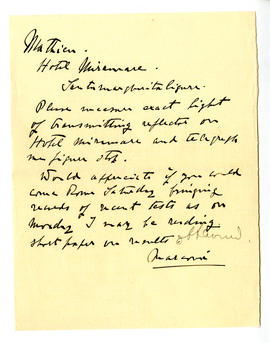 Mathieu.
Hotel Miramare.
Santamargheritaligure.
Please measure exact height
of transmitting reflector on
Hotel Miramare and telegraph
me figure stop.
Would appreciate if you would
come Rome Saturday bringing
records of recent tests as on
Monday I may be reading
short paper on results obtained
Marconi